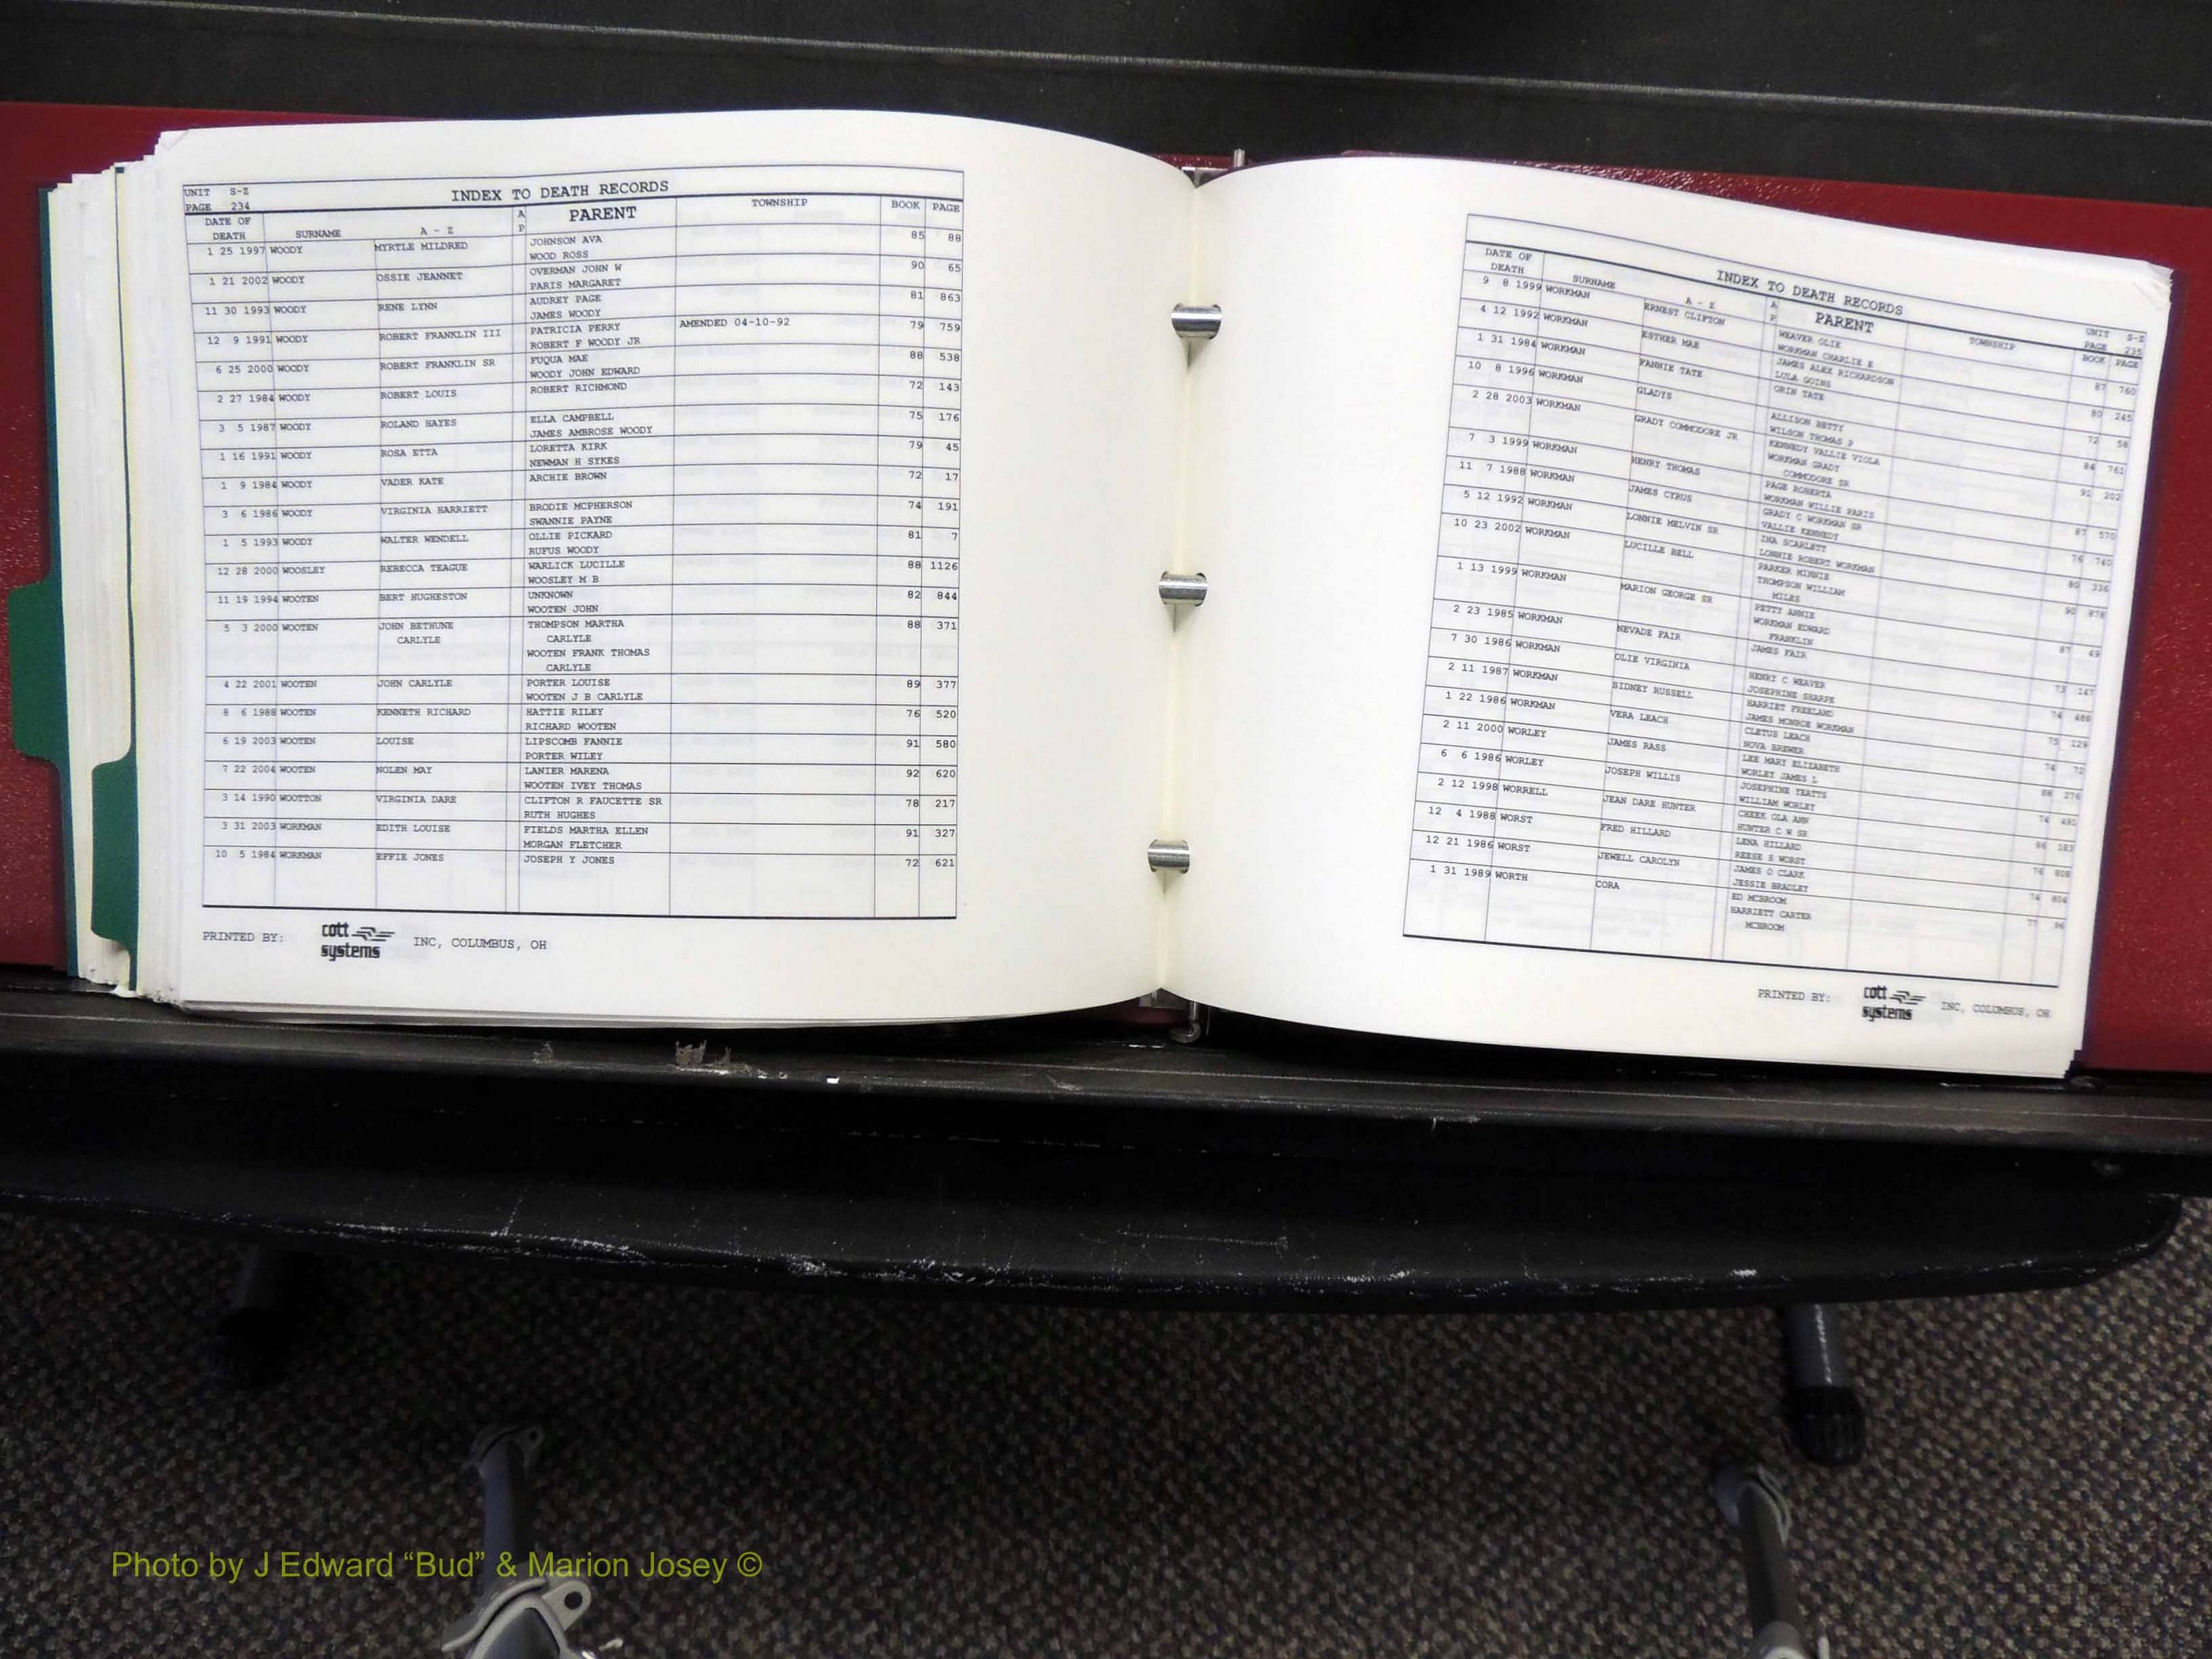 UNIT S-Z
PAGE 234
INDEX TO DEATH RECORDS
DATE OF DEATH SURNAME A - Z A P PARENT TOWNSHIP BOOK PAGE
1 25 1997 WOODY MYRTLE MILDRED JOHNSON AVA 85 88
WOOD ROSS
1 21 2002 WOODY OSSIE JEANNET OVERMAN JOHN W 90 65
PARIS MARGARET
11 30 1993 WOODY RENE LYNN AUDREY PAGE 81 863
JAMES WOODY
12 9 1991 WOODY ROBERT FRANKLIN III PATRICIA PERRY AMENDED 04-10-92 79 759
ROBERT F WOODY JR
6 25 2000 WOODY ROBERT FRANKLIN SR FUQUA MAE 88 538
WOODY JOHN EDWARD
2 27 1984 WOODY ROBERT LOUIS ROBERT RICHMOND 72 143
3 5 1987 WOODY ROLAND HAYES ELLA CAMPBELL 75 176
JAMES AMBROSE WOODY
1 16 1991 WOODY ROSA ETTA LORETTA KIRK 79 45
NEWMAN H SYKES
1 9 1984 WOODY VADER KATE ARCHIE BROWN 72 17
3 6 1986 WOODY VIRGINIA HARRIETT BRODIE MCPHERSON 74 191
SWANNIE PAYNE
1 5 1993 WOODY WALTER WENDELL OLLIE PICKARD 81 7
RUFUS WOODY
12 28 2000 WOOSLEY REBECCA TEAGUE WARLICK LUCILLE 88 1126
WOOSLEY M B
11 19 1994 WOOTEN BERT HUGHESTON UNKNOWN 82 844
WOOTEN JOHN
5 3 2000 WOOTEN JOHN BETHUNE THOMPSON MARTHA 88 371
CARLYLE CARLYLE
WOOTEN FRANK THOMAS
CARLYLE
4 22 2001 WOOTEN JOHN CARLYLE PORTER LOUISE 89 377
WOOTEN J B CARLYLE
8 6 1988 WOOTEN KENNETH RICHARD HATTIE RILEY 76 520
RICHARD WOOTEN
6 19 2003 WOOTEN LOUISE LIPSCOMB FANNIE 91 580
PORTER WILEY
7 22 2004 WOOTEN NOLEN MAY LANIER MARENA 92 620
WOOTEN IVEY THOMAS
3 14 1990 WOOTTON VIRGINIA DARE CLIFTON R FAUCETTE SR 78 217
RUTH HUGHES
3 31 2003 WORKMAN EDITH LOUISE FIELDS MARTHA ELLEN 91 327
MORGAN FLETCHER
10 5 1984 WORKMAN EFFIE JONES JOSEPH Y JONES 72 621
PRINTED BY: cott systems INC, COLUMBUS, OH
INDEX TO DEATH RECORDS
UNIT S-Z
PAGE 235
DATE OF DEATH SURNAME A - Z A P PARENT TOWNSHIP BOOK PAGE
9 8 1999 WORKMAN ERNEST CLIFTON WEAVER OLIE 87 760
WORKMAN CHARLIE E
4 12 1992 WORKMAN ESTHER MAE JAMES ALEX RICHARDSON 80 245
LULA GOINS
1 31 1984 WORKMAN FANNIE TATE ORIN TATE 72 58
10 8 1996 WORKMAN GLADYS ALLISON HETTY 84 761
WILSON THOMAS P
2 28 2003 WORKMAN GRADY COMMODORE JR KENNEDY VALLIE VIOLA 91 202
WORKMAN GRADY
COMMODORE SR
7 3 1999 WORKMAN HENRY THOMAS PAGE ROBERTA 87 570
WORKMAN WILLIE PARIS
11 7 1988 WORKMAN JAMES CYRUS GRADY C WORKMAN SR 76 740
VALLIE KENNEDY
5 12 1992 WORKMAN LONNIE MELVIN SR INA SCARLETT 80 336
LONNIE ROBERT WORKMAN
10 23 2002 WORKMAN LUCILLE BELL PARKER MINNIE 90 878
THOMPSON WILLIAM
MILES
1 13 1999 WORKMAN MARION GEORGE SR PETTY ANNIE 87 49
WORKMAN EDWARD
FRANKLIN
2 23 1985 WORKMAN NEVADE FAIR JAMES FAIR 73 147
7 30 1986 WORKMAN OLIE VIRGINIA HENRY C WEAVER 74 488
JOSEPHINE SHARPE
2 11 1987 WORKMAN SIDNEY RUSSELL HARRIET FREELAND 75 129
JAMES MONROE WORKMAN
1 22 1986 WORKMAN VERA LEACH CLETUS LEACH 74 72
NOVA BREWER
2 11 2000 WORLEY JAMES RASS LEE MARY ELIZABETH 88 276
WORLEY JAMES L
6 6 1986 WORLEY JOSEPH WILLIS JOSEPHINE YEATTS 74
WILLIAM WORLEY
2 12 1998 WORRELL JEAN DARE HUNTER CHEEK OLA ANN 86 183
HUNTER C W SR
12 4 1988 WORST FRED HILLARD LENA HILLARD 76 808
REESE S WORST
12 21 1986 WORST JEWELL CAROLYN JAMES O CLARK 74 804
JESSIE BRADLEY
1 31 1989 WORTH CORA ED MCBROOM 77
HARRIETT CARTER
MCBROOM
PRINTED BY: cott systems INC, COLUMBUS, OH
Photo by J Edward “Bud” & Marion Josey ©